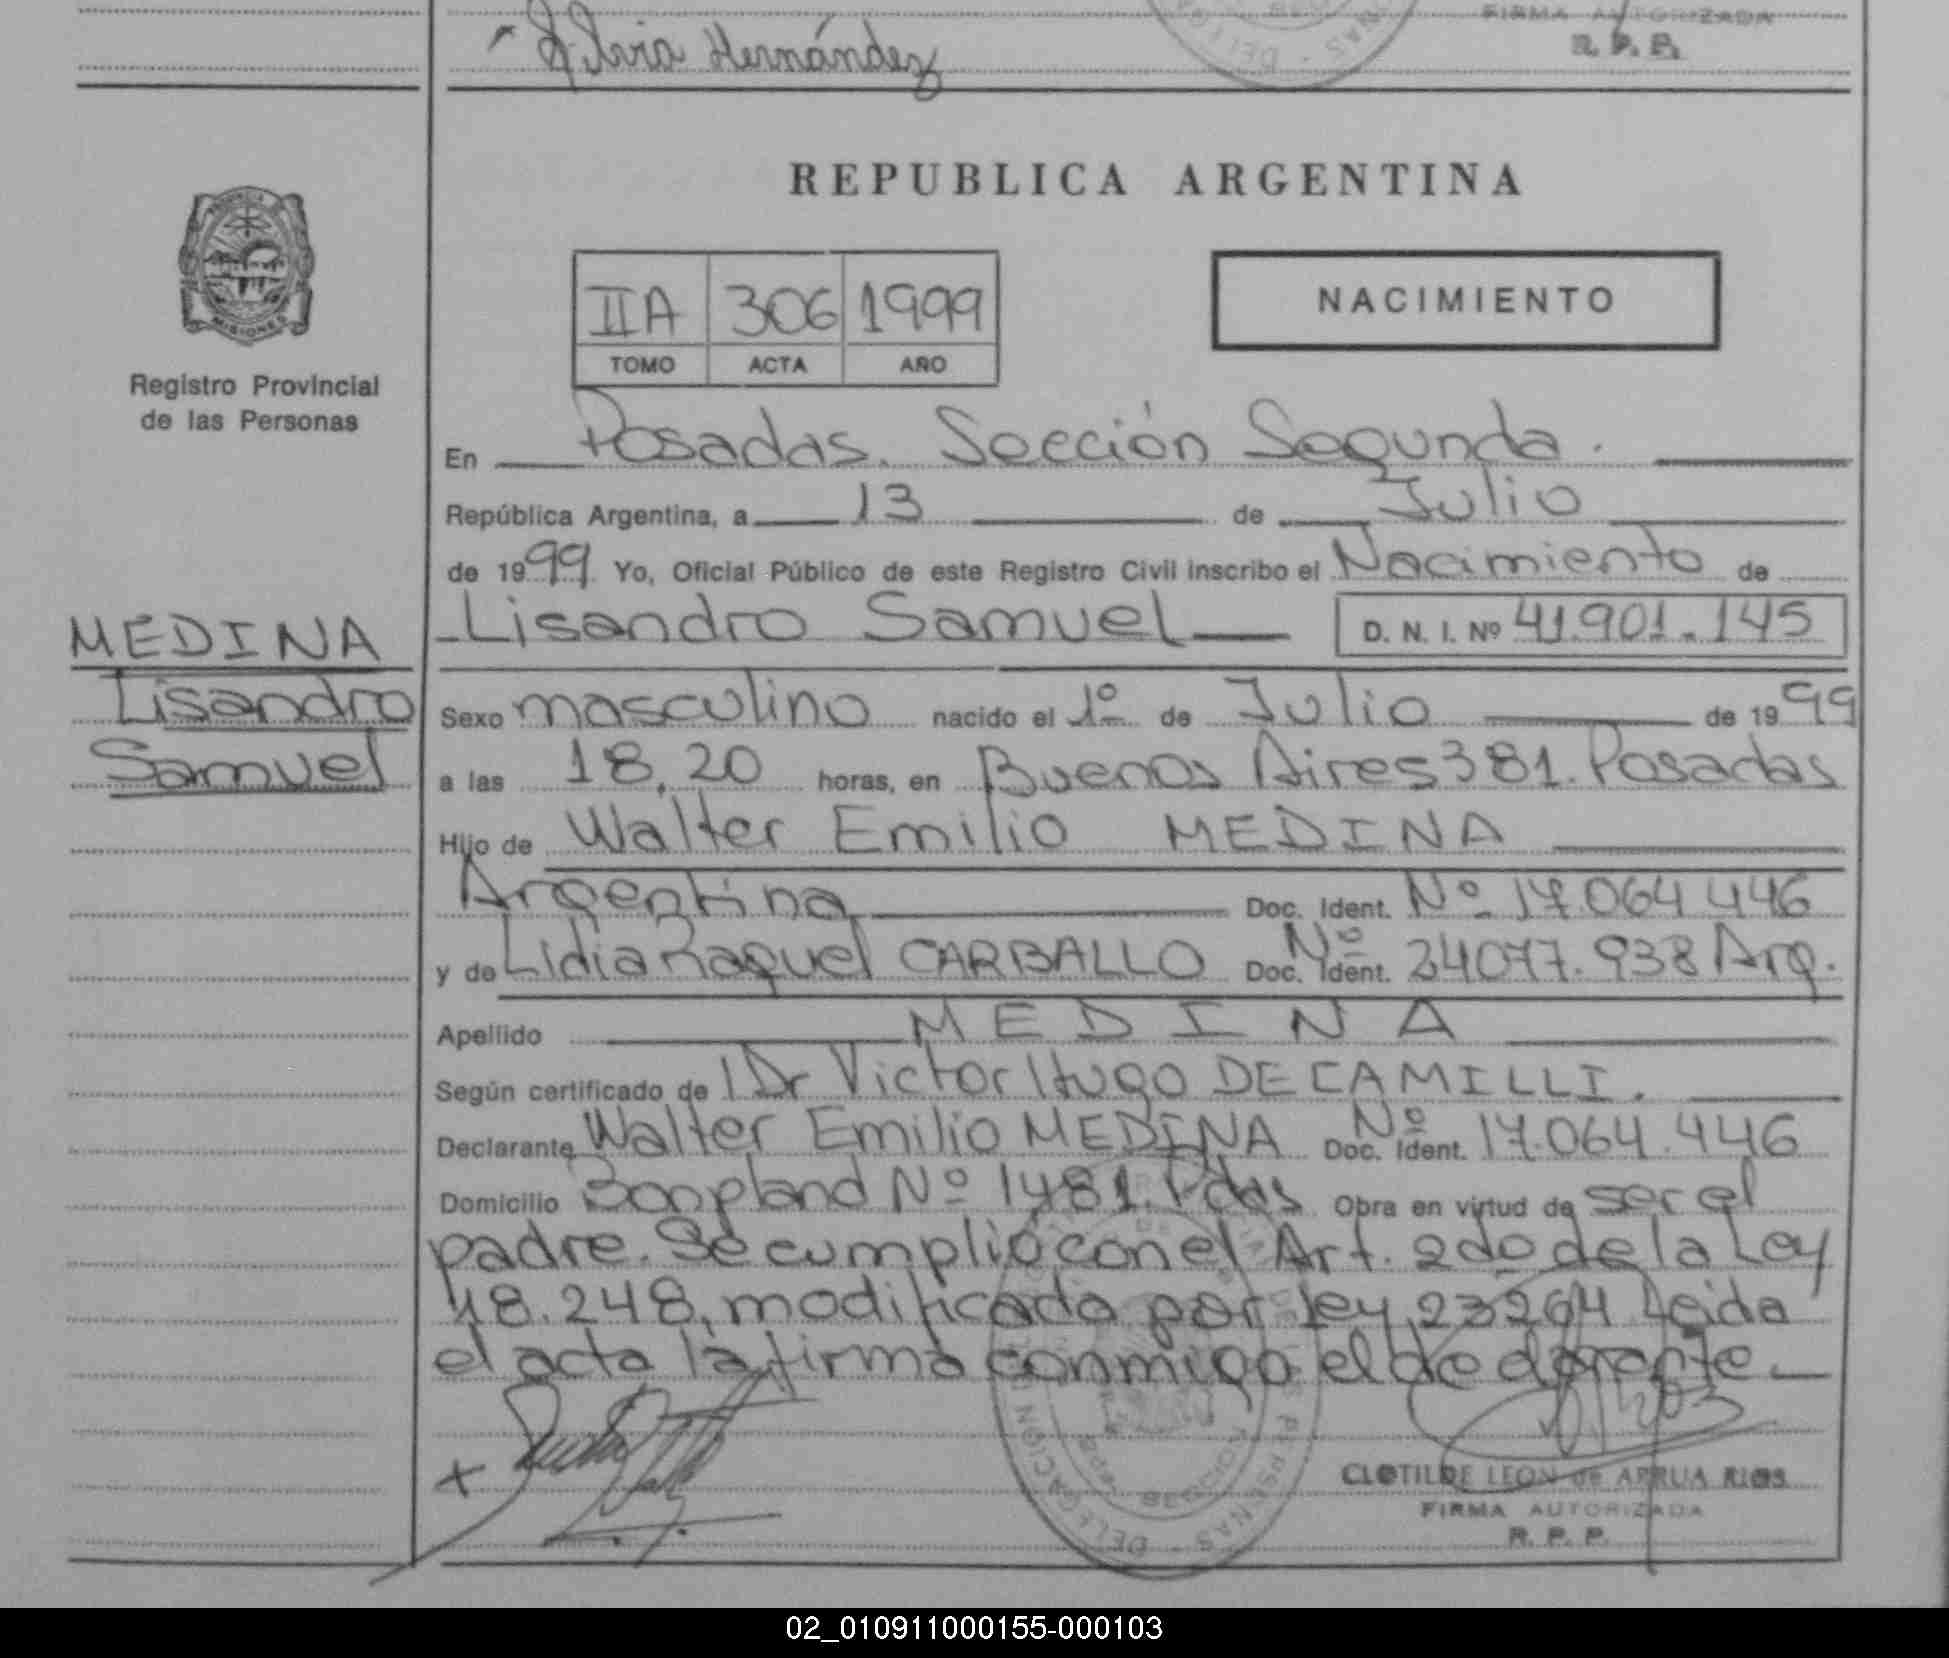 Silvia Hernández
FIRMA AUTORIZADA
R. P. P.
REPUBLICA ARGENTINA
MISIONES
Registro Provincial
de las Personas
IIA 306 1999
TOMO ACTA AÑO
NACIMIENTO
En Posadas. Sección Segunda.
República Argentina, a 13 de Julio
de 1999 Yo, Oficial Público de este Registro Civil inscribo el Nacimiento de
MEDINA
Lisandro
Samuel
Lisandro Samuel D. N. I. Nº 41.901.145
Sexo masculino nacido el 1º de Julio de 1999
a las 18,20 horas, en Buenos Aires 381. Posadas
Hijo de Walter Emilio MEDINA
Argentina Doc. Ident. Nº 17.064 446
y de Lidia Raquel CARBALLO Doc. Ident. Nº 24077.938 Arg.
Apellido MEDINA
Según certificado de l Dr Victor Hugo DECAMILLI.
Declarante Walter Emilio MEDINA Doc. Ident. Nº 17.064.446
Domicilio Bonpland Nº 1481. Pdas Obra en virtud de ser el
padre. Se cumplió con el Art. 2do de la Ley
18.248, modificada por ley 23264 Leida
el acta la firma conmigo el declarante
CLOTILDE LEON de ARRUA RIOS
FIRMA AUTORIZADA
R. P. P.
02_010911000155-000103